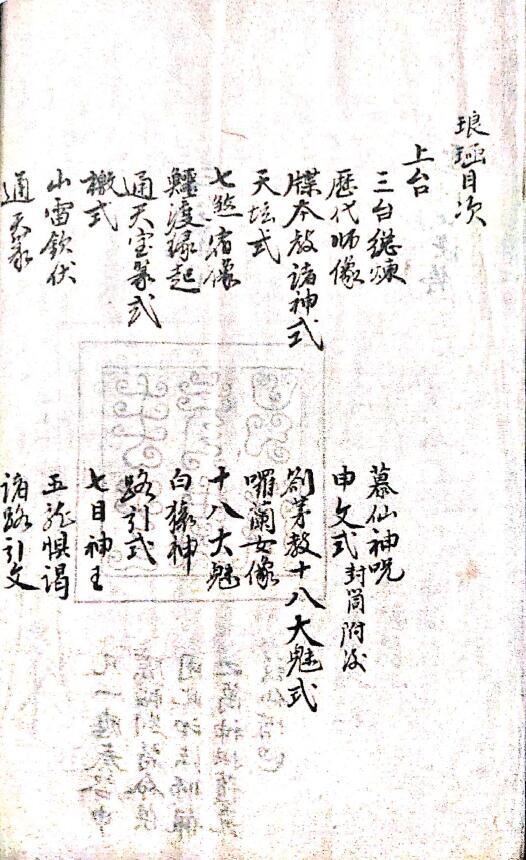 琅函目次
上台
三台總煉 慕仙神咒
歷代師像 申文式 封筒附後
牒本教諸神式 劄茅教十八大魁式
天坛式 囉蘭女像
七煞诸像 十八大魁
渡緣起 白猿神
通天宝篆式 路引式
檄式 七目神王
山雷欽伏 五龍惧谒
通天篆 諸路引文